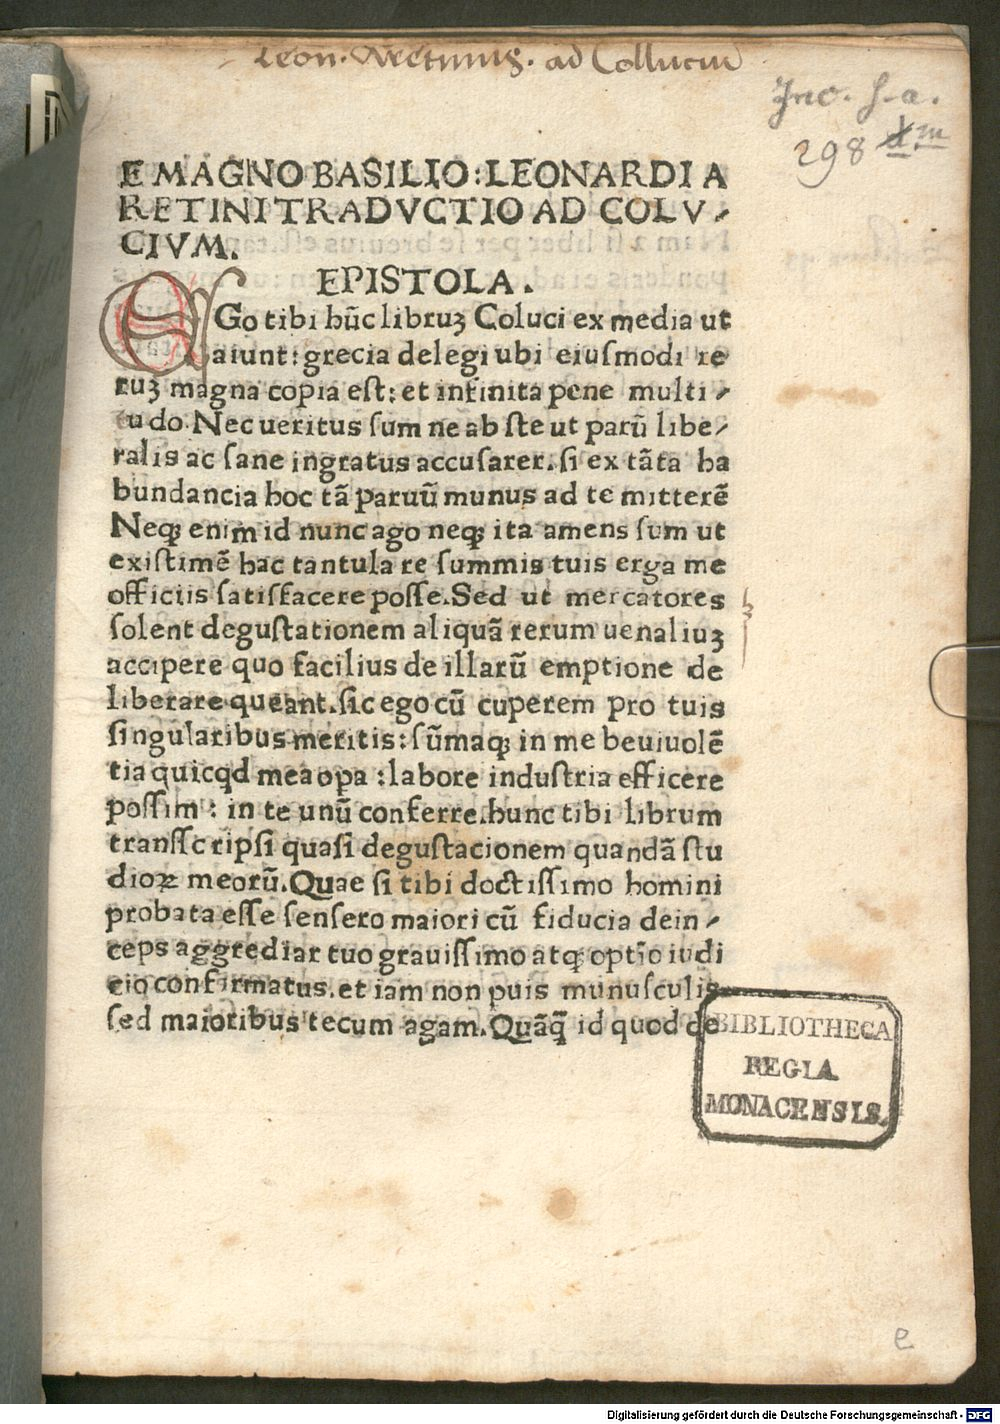 Leon. Aretinus. ad Colluciu
Inc. s. a.
298 x m
E MAGNO BASILIO: LEONARDI A
RETINI TRADVCTIO AD COLV-
CIVM.
EPISTOLA.
EGo tibi hūc libruꝫ Coluci ex media ut
aiunt: grecia delegi ubi eiusmodi re
ruꝫ magna copia est: et infinita pene multi-
tudo. Nec ueritus sum ne abs te ut parū libe-
ralis ac sane ingratus accusarer. si ex tāta ha
bundancia hoc tā paruū munus ad te mitterē
Neqꝫ enim id nunc ago neqꝫ ita amens sum ut
existimē hac tantula re summis tuis erga me
officiis satisfacere posse. Sed ut mercatores
solent degustationem aliquā rerum uenaliuꝫ
accipere quo facilius de illarū emptione de
liberare queant. sic ego cū cuperem pro tuis
singularibus meritis: sūmaqꝫ in me beuiuolē
tia quicqd mea opa: labore industria efficere
possim: in te unū conferre. hunc tibi librum
transscripsi quasi degustacionem quandā stu
dioꝝ meorū. Quae si tibi doctissimo homini
probata esse sensero maiori cū fiducia dein-
ceps aggrediar tuo grauissimo atqꝫ optīo iudi
cio confirmatus. et iam non puis munusculis
sed maioribus tecum agam. Quāqꝫ̄ id quod de
BIBLIOTHECA
REGIA
MONACENSIS.
e
Digitalisierung gefördert durch die Deutsche Forschungsgemeinschaft - DFG